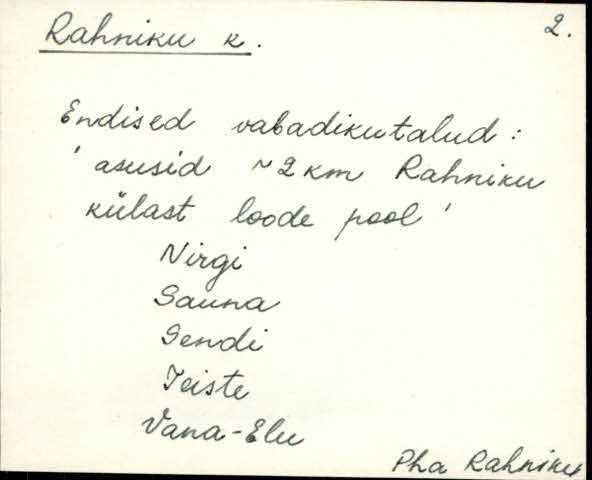 Rahniku k.
2.
Endised vabadikutalud:
'asusid ~2 km Rahniku
külast loode pool'
Nirgi
Sauna
Sendi
Teiste
Vana-Elu
Pha Rahniku